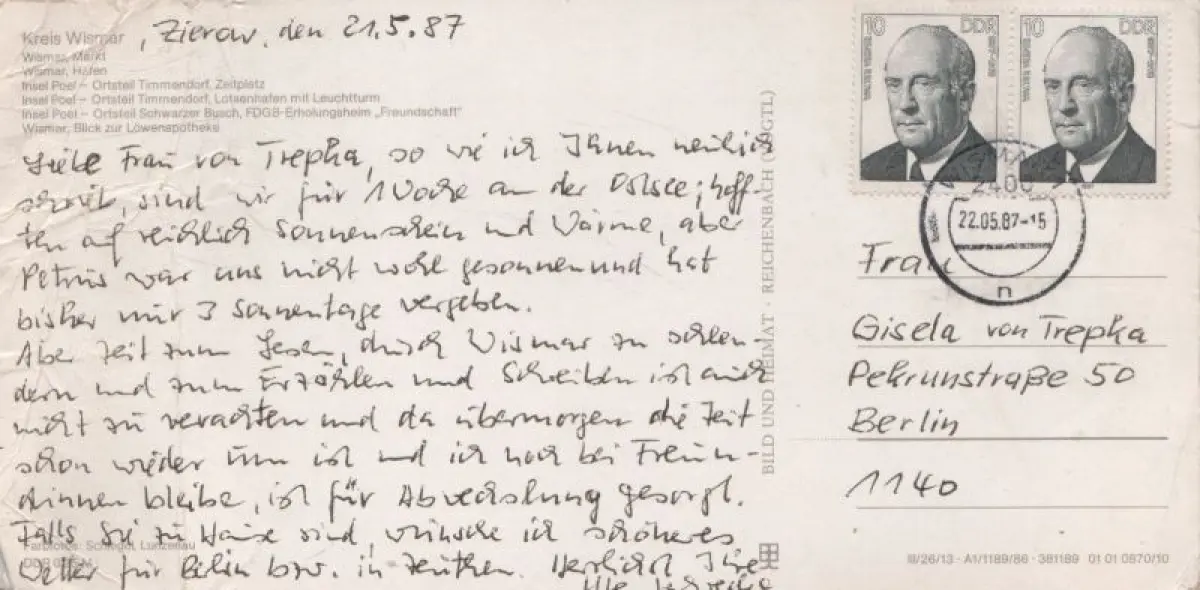 Kreis Wismar, Zierow, den 21.5.87
Wismar, Markt
Wismar, Hafen
Insel Poel – Ortsteil Timmendorf, Zeltplatz
Insel Poel – Ortsteil Timmendorf, Lotsenhafen mit Leuchtturm
Insel Poel – Ortsteil Schwarzer Busch, FDGB-Erholungsheim „Freundschaft"
Wismar, Blick zur Löwenapotheke
Liebe Frau von Trepka, so wie ich Ihnen neulich
schrieb, sind wir für 1 Woche an der Ostsee; hoff-
ten auf reichlich Sonnenschein und Wärme, aber
Petrus war uns nicht wohl gesonnen und hat
bisher nur 3 Sonnentage vergeben.
Aber Zeit zum Lesen, durch Wismar zu schlen-
dern und zum Erzählen und Schreiben ist auch
nicht zu verachten und da übermorgen die Zeit
schon wieder um ist und ich noch bei Freun-
dinnen bleibe, ist für Abwechslung gesorgt.
Falls Sie zu Hause sind, wünsche ich schöneres
Wetter für Berlin bzw. in Zeuthen. Herzlichst Ihre
Farbfotos: Schlegel,
BILD UND HEIMAT · REICHENBACH (VOGTL)
10 DDR
10 DDR
2400
22.05.87-15
n
Frau
Gisela von Trepka
Pekrunstraße 50
Berlin
1140
III/26/13 · A1/1189/86 · 381189 01 01 0870/10